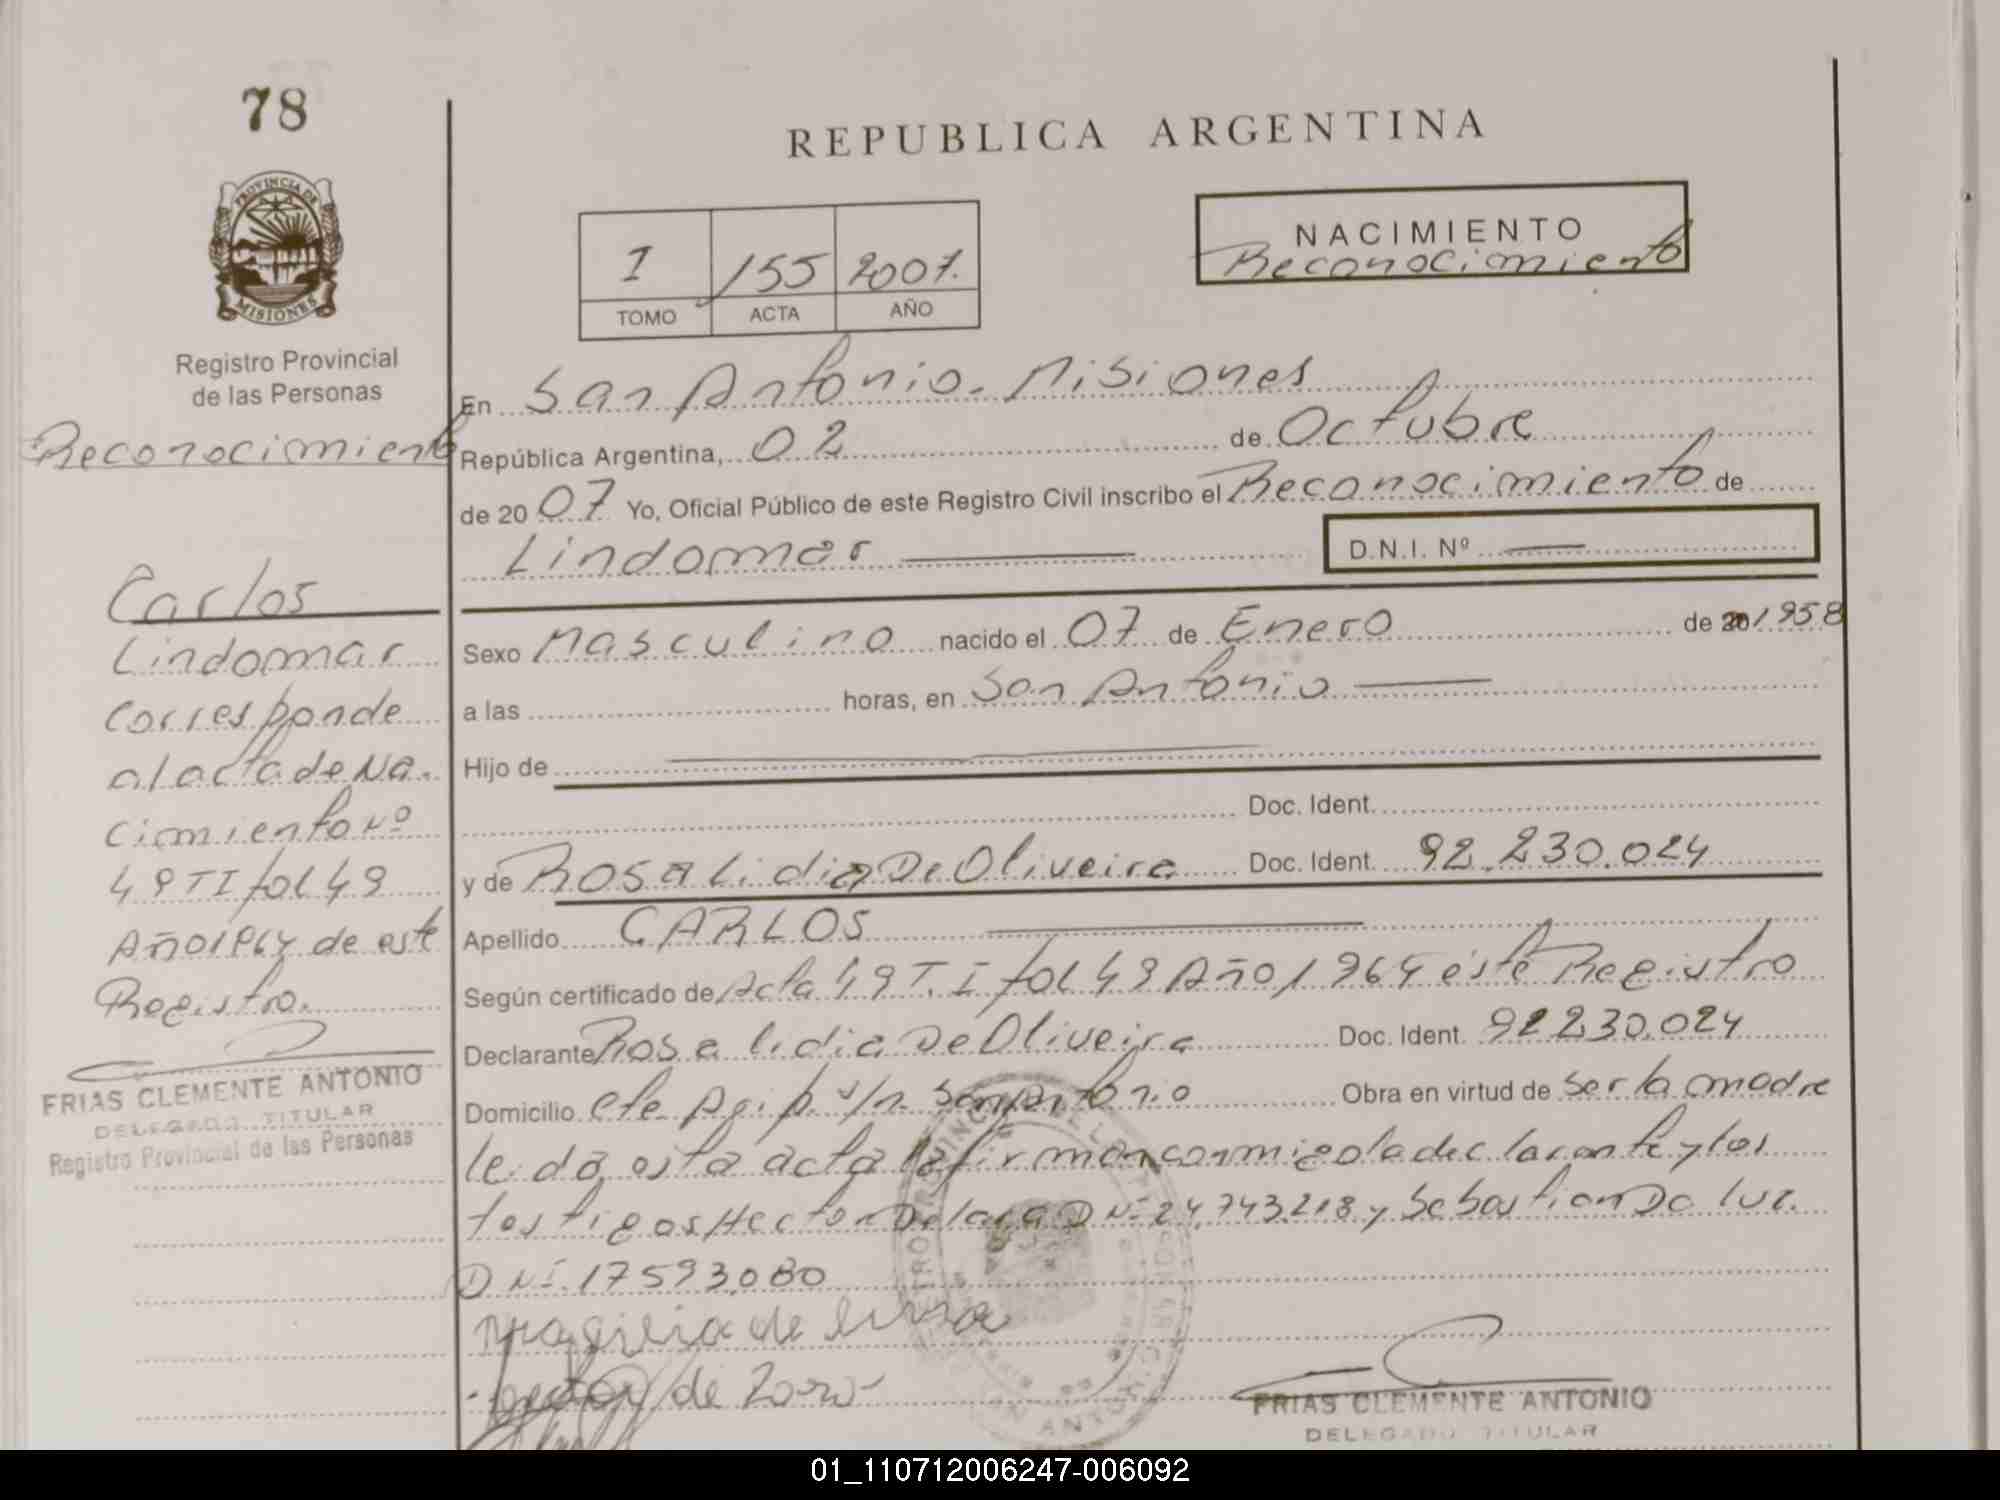 78
REPUBLICA ARGENTINA
PROVINCIA DE
MISIONES
Registro Provincial
de las Personas
I 155 2007.
TOMO ACTA AÑO
NACIMIENTO
Reconocimiento
Reconocimiento
Carlos
Lindomar
Corresponde
al acta de Na.
cimiento Nº
49 TI fol 49
Año 1964 de este
Registro.
FRIAS CLEMENTE ANTONIO
DELEGADO TITULAR
Registro Provincial de las Personas
En San Antonio - Misiones
República Argentina, 02 de Octubre
de 20 07 Yo, Oficial Público de este Registro Civil inscribo el Reconocimiento de
Lindomar D.N.I. Nº
Sexo Masculino nacido el 07 de Enero de 20 1958
a las horas, en San Antonio
Hijo de
Doc. Ident.
y de Rosa Lidia De Oliveira Doc. Ident. 92.230.024
Apellido CARLOS
Según certificado de Acta 49 T. I fol 49 Año 1964 este Registro
Declarante Rosa lidia De Oliveira Doc. Ident. 92230.024
Domicilio s/n San Antonio Obra en virtud de ser la madre
leida esta acta la firman conmigo la declarante y los
testigos Hector De lara D Nº 24.743.218 y Sebastian Da luz.
D NI. 17593.080
de
de
FRIAS CLEMENTE ANTONIO
DELEGADO TITULAR
01_110712006247-006092